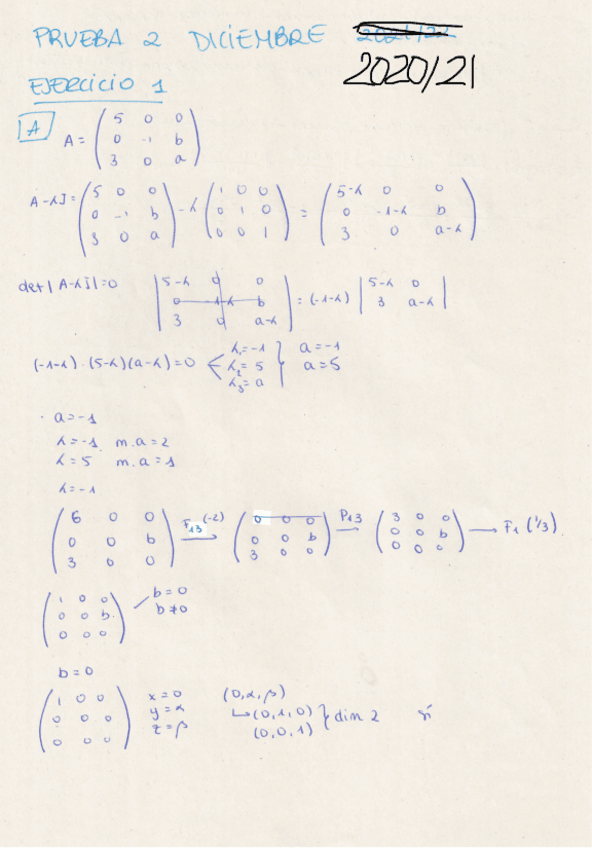 PRUEBA 2 DICIEMBRE 2021/22
2020/21
EJERCICIO 1
A
A = ( 5 0 0
0 -1 b
3 0 a )
A-λI = ( 5 0 0 / 0 -1 b / 3 0 a ) - λ ( 1 0 0 / 0 1 0 / 0 0 1 ) = ( 5-λ 0 0 / 0 -1-λ b / 3 0 a-λ )
det|A-λI|=0 | 5-λ 0 0 / 0 -1-λ b / 3 0 a-λ | = (-1-λ) | 5-λ 0 / 3 a-λ |
(-1-λ)·(5-λ)(a-λ)=0 < λ₁=-1 λ₂=5 λ₃=a } a=-1 a=5
· a=-1
λ=-1 m.a=2
λ=5 m.a=1
λ=-1
( 6 0 0 / 0 0 b / 3 0 0 ) F13(-2) → ( 0 0 0 / 0 0 b / 3 0 0 ) P13 → ( 3 0 0 / 0 0 b / 0 0 0 ) → F1(1/3)
( 1 0 0 / 0 0 b / 0 0 0 ) b=0 b≠0
b=0
( 1 0 0 / 0 0 0 / 0 0 0 ) x=0 y=α z=β (0,α,β) ↳(0,1,0) (0,0,1) } dim 2 sí